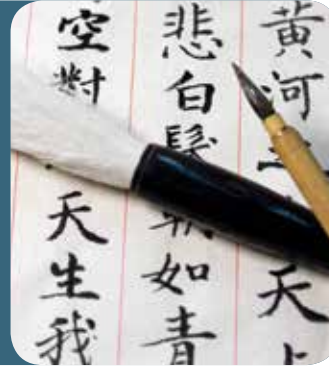 黃河之天上
悲白髮朝如青
空對天生我